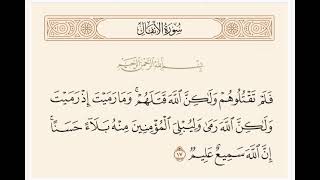 سُورَةُ الأَنفَالِ
بِسْمِ اللَّهِ الرَّحْمَٰنِ الرَّحِيمِ
فَلَمْ تَقْتُلُوهُمْ وَلَٰكِنَّ اللَّهَ قَتَلَهُمْ ۚ وَمَا رَمَيْتَ إِذْ رَمَيْتَ
وَلَٰكِنَّ اللَّهَ رَمَىٰ وَلِيُبْلِيَ الْمُؤْمِنِينَ مِنْهُ بَلَاءً حَسَنًا ۚ
إِنَّ اللَّهَ سَمِيعٌ عَلِيمٌ ١٧